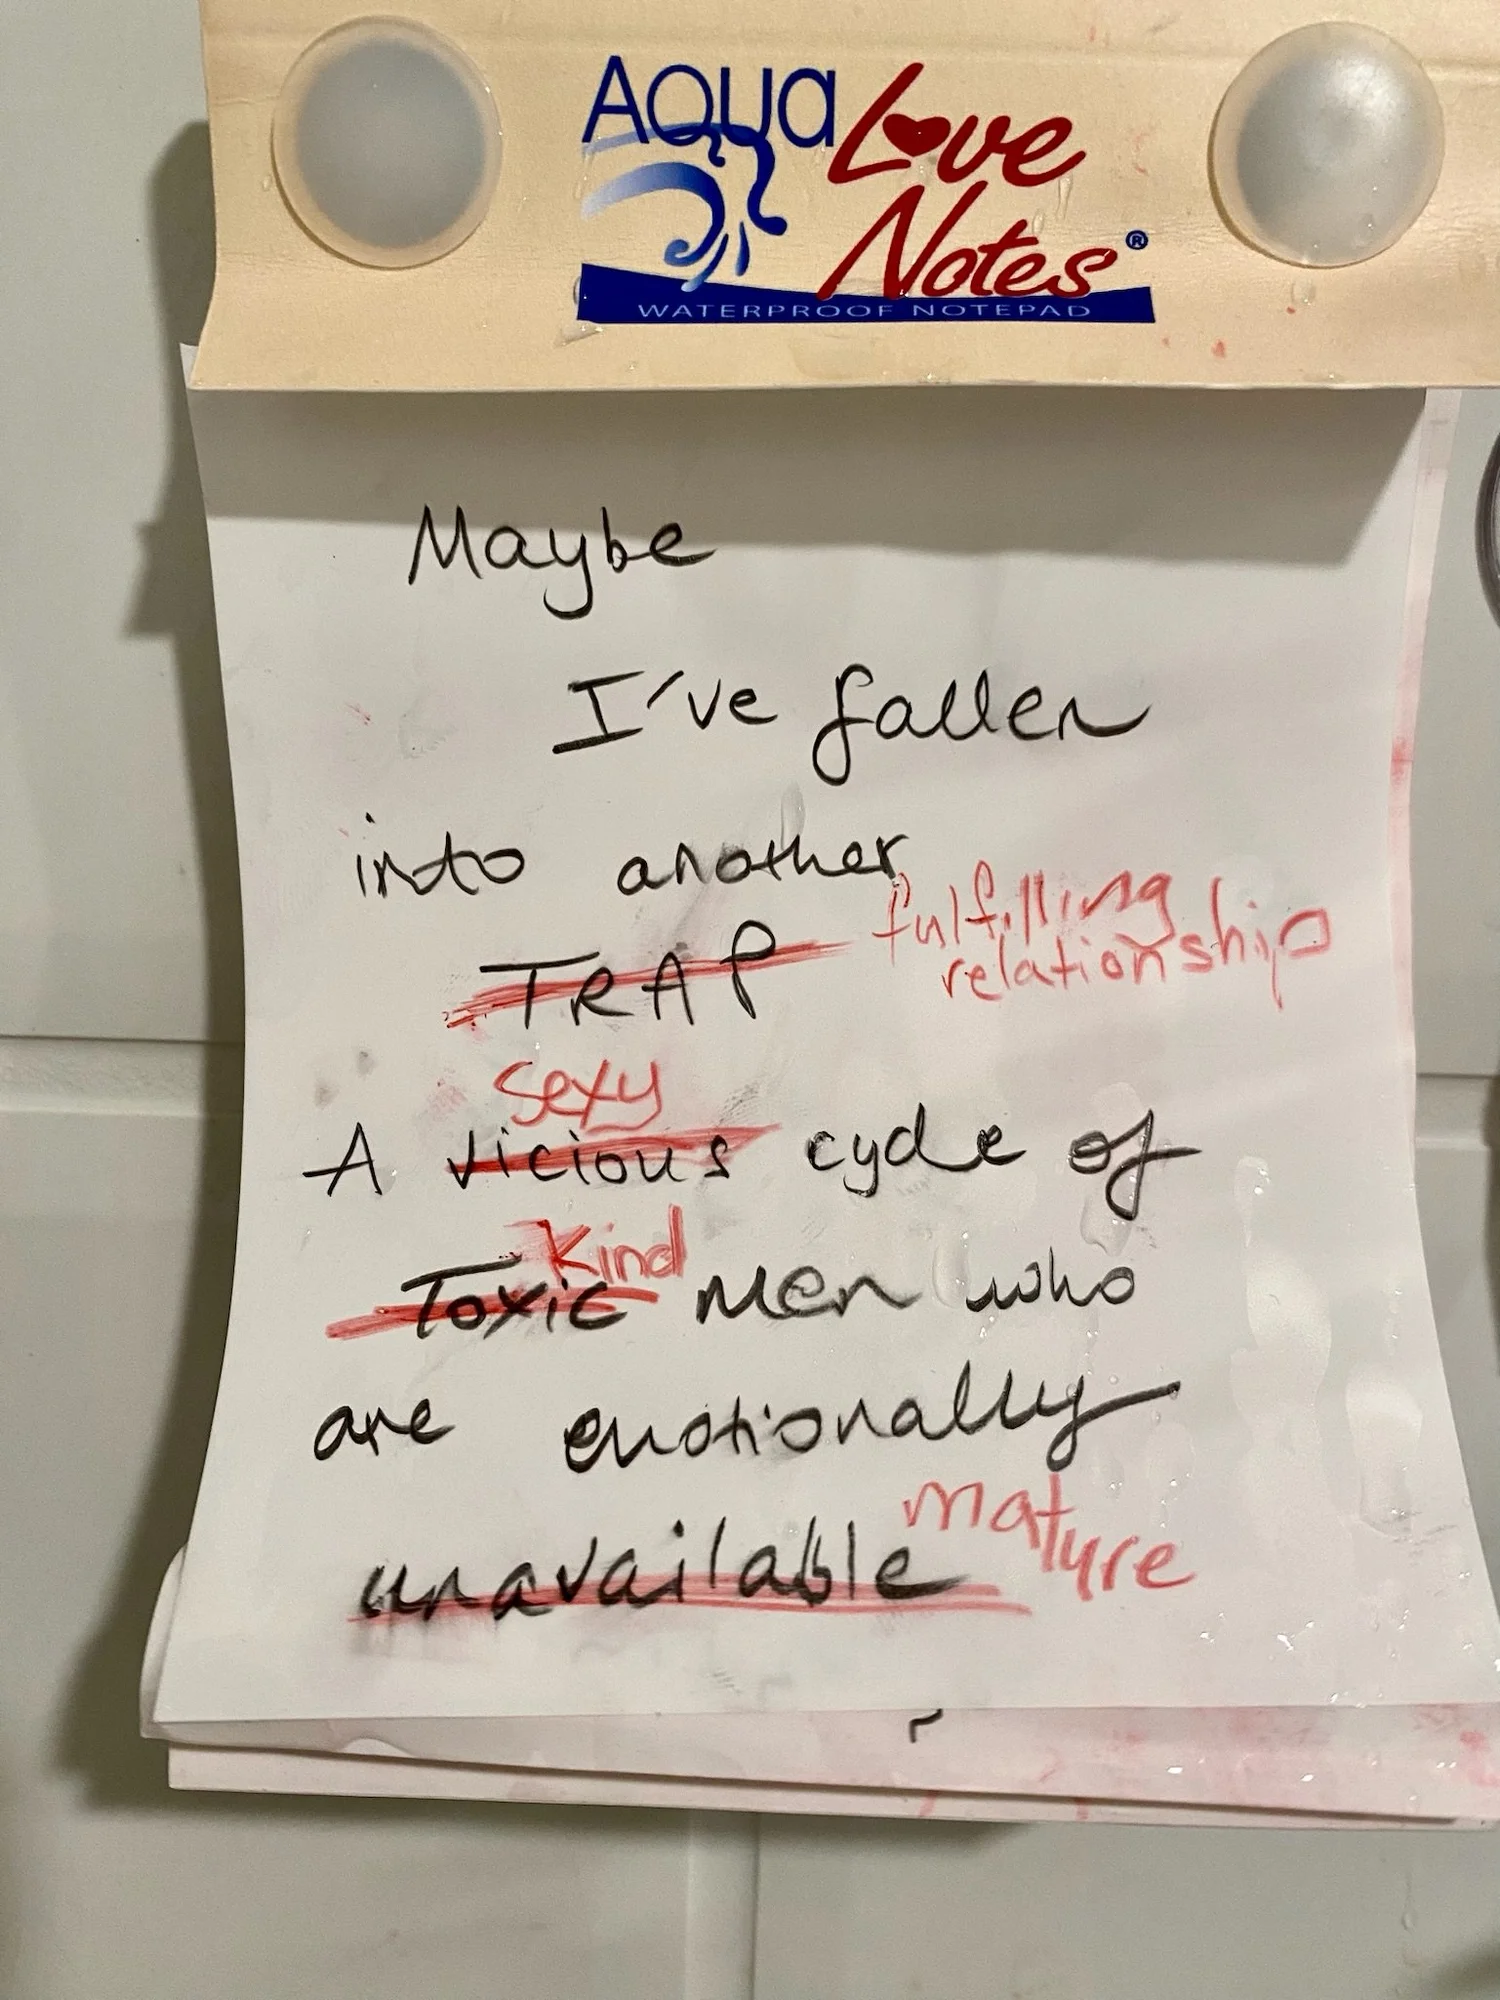 AQUA Love
Notes®
WATERPROOF NOTEPAD
Maybe
I've fallen
into another
TRAP fulfilling
relationship
sexy
A vicious cycle of
Kind
Toxic Men who
are emotionally
unavailable mature